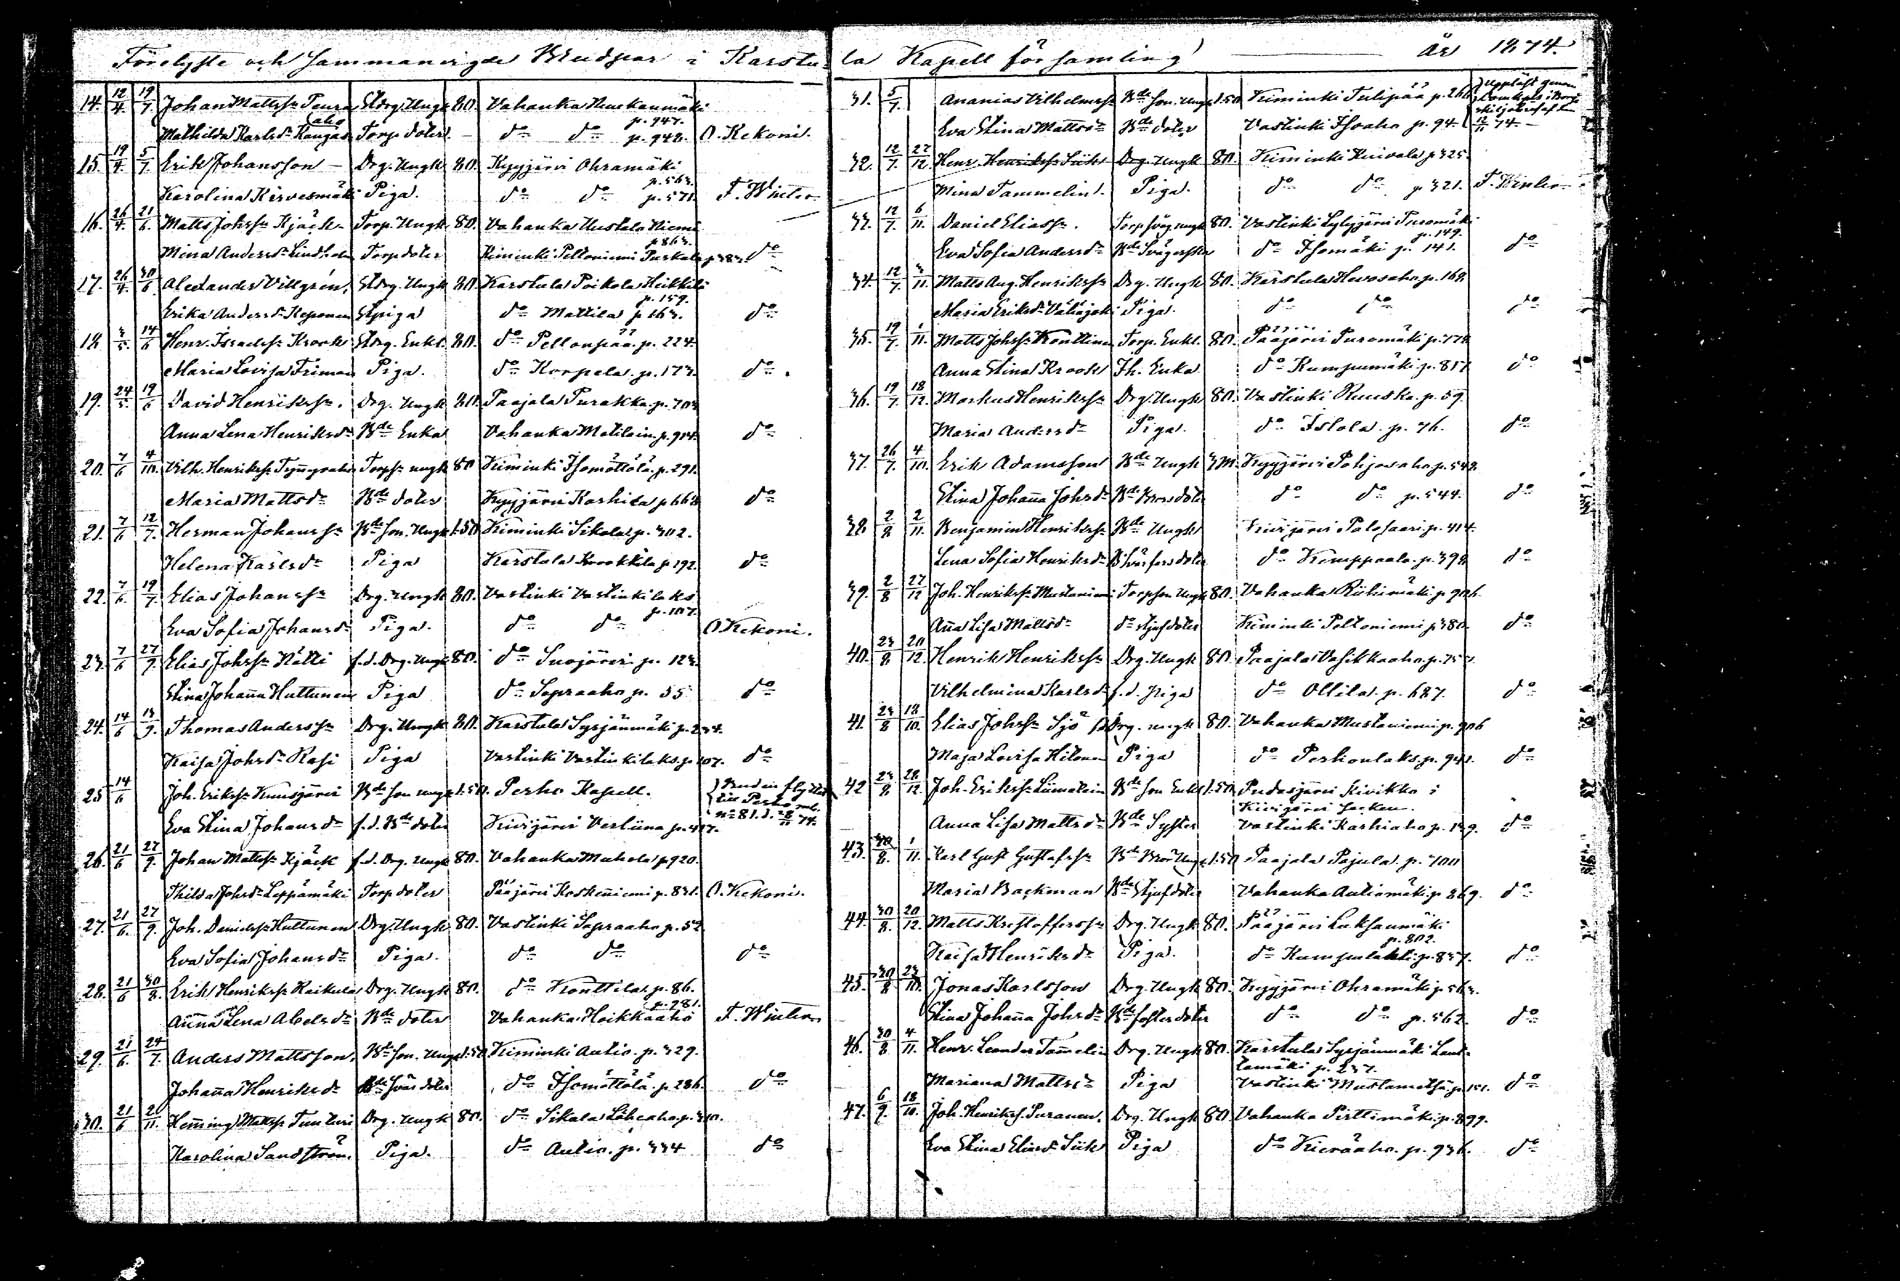 Förelyste och Sammanvigde Brudpar i Karstula Kapell församling år 1874.
14. 12/4 19/7 Johan Mattss: Peura Stdrg. Ungk 80. Vahanka Muskanmäki p. 947.
Mathilda Karlsdr Kangasaho Torp. doter – do do p. 948. O. Kekoni.
15. 19/4 5/7 Erik Johansson – Drg. Ungk 80. Kyyjärvi Ohramäki p. 563.
Karolina Kirvesmäki Piga. do do p. 571. F. Winter
16. 26/4 21/6 Matts Johss: Kjäck Torp. Ungk 80. Vahanka Uustalo Niemi p. 863.
Mina Andersdr Lindholm Torp doter Kiminki Peltoniemi Purkala p. 383. do
17. 26/4 30/6 Alexander Villgrén. Stdrg. Ungk 80. Karstula Poikola Heikkilä p. 159.
Erika Andersdr Keponen Stpiga do Mattila p. 163. do
18. 3/5 14/6 Henr. Israelss: Krook Stdrg. Enkl. 80. do Pellonpää p. 224.
Maria Lovisa Friman Piga. do Korpela. p. 173. do
19. 24/5 19/6 David Henrikss:. Drg. Ungk 80. Paajala Purakka. p. 703
Anna Lena Henriksdr Bde Enka Vahanka Matilain p. 914. do
20. 7/6 4/10. Vilh. Henrikss: Torps: ungk 80 Kiminki Isomöttölä. p. 291.
Maria Mattsdr Bde doter Kyyjärvi Koskida p. 668 do
21. 7/6 12/7. Herman Johanss: Bde son. Ungk 1.50. Kiminki Sikala p. 302.
Helena Karlsdr Piga Karstula Krookkila p. 192. do
22. 7/6 19/7. Elias Johanss: Drg. Ungk 80. Vastinki Vastinkilaks p. 107.
Eva Sofia Johansdr Piga. do do O. Kekoni.
23. 7/6 27/9. Elias Johss: Hätti f.d. Drg. Ungk 80. do Suojärvi p. 123.
Stina Johaña Huttunen Piga do Sopraaho p. 55 do
24. 14/6 13/9. Thomas Anderss: Drg. Ungk 80. Karstula Syrjänmäki p. 234.
Kaisa Johsdr Rasi Piga Vastinki Vastinkilaks. p. 107. do
25 14/6 Joh. Erikss: Kuusjärvi Bde son ungk 1.50. Perho Kapell. Bruden flyttat till Perho ml. no 81. d. 8/11 74.
Eva Stina Johansdr f.d. Bde doter Kivijärvi Vertiina p. 417.
26. 21/6 27/9. Johan Mattss: Kjäck f.d. Drg. Ungk 80. Vahanka Mahola p. 920.
Thilda Johsdr Leppämäki Torp doter Pääjärvi Koskeniemi p. 831. O. Kekoni.
27. 21/6. 27/9. Joh. Davidss: Huttunen Drg. Ungk 80. Vastinki Sopraaho p. 52
Eva Sofia Johansdr Piga. do do do
28. 21/6 30/8. Erik Henrikss: Raikula Drg. Ungk 80. do Konttila p. 86.
Anna Lena Abelsdr Bde doter Vahanka Hoikkaaho p. 281. F. Winter
29. 21/6 24/7. Anders Mattsson, Bde son. Ungk 1.50. Kiminki Autio. p. 329.
Johaña Henriksdr Bde Svär doter do Isomöttölä. p. 286. do
30. 21/6 21/11. Heñing Mattss: Tunturi Drg. Ungk 80. do Sikala Löheaho. p. 310.
Karolina Sandström. Piga. do Autio. p. 334 do
31. 5/7. Ananias Vilhelmss: Bde son. Ungk 1.50. Kiminki Tulipää p. 260 Upplöst genom Domkap:s skiljobref af den 12/11 74.
Eva Stina Mattsdr Bde doter Vastinki Isoaho p. 94.
32. 12/7. 27/12. Henr. Henrikss: Siik Drg. Ungk 80. Kiminki Kuivala p. 325.
Mina Tammelin. Piga. do do p. 321. F. Winter
33. 12/7. 6/11. Daniel Eliass:. Torp svåg ungk 80. Vastinki Sylyjärvi Puromäki p. 149.
Eva Sofia Andersdr Bde Svägerska do Isomäki p. 141. do
34. 12/7. 3/11. Matts Aug. Henrikss: Drg. Ungk 80. Karstula Huvosaho. p. 168.
Maria Eriksdr Vähäjoki Piga. do do do
35. 19/7. 1/11. Matts Johss: Konttinen Torp. Enkl. 80. Pääjärvi Puromäki p. 778.
Anna Stina Krook Jh. Enka do Rumpumäki p. 817 do
36. 19/7. 18/12. Markus Henrikss: Drg. Ungk 80. Vastinki Ruuska. p. 59.
Maria Andersdr Piga. do Islola. p. 76. do
37. 26/7. 4/10. Erik Adamsson Bde Ungk 3 M. Kyyjärvi Pohjosaho p. 548.
Stina Johaña Johsdr Bde Brors doter do do p. 544. do
38. 2/8 2/11. Benjamin Henrikss: Bde Ungk Kivijärvi Palosaari p. 414.
Lena Sofia Henriksdr Bde svärfars doter do Kemppaala. p. 398. do
39. 2/8 27/12 Joh. Henrikss: Mustaniemi Torpson Ungk 80. Vahanka Riihimäki p. 906.
Aña Lisa Mattsdr do styfdoter Kiminki Peltoniemi p. 380. do
40. 23/8 20/12. Henrik Henrikss: Drg. Ungk 80. Paajala Vasikkaaho. p. 757.
Vilhelmina Karlsdr f.d. Piga do Ollila. p. 687. do
41. 23/8 18/10. Elias Johss: Sjö Drg. ungk 80. Vahanka Mustaniemi. p. 906
Maja Lovisa Hiltunen Piga do Perkonlaks. p. 941. do
42 23/8 28/12. Joh. Erikss: Liimatain Bde son Enkl 1.50. Pudasjärvi Kivikko i Kivijärvi socken.
Anna Lisa Mattsdr Bde Syster Vastinki Karhiaho p. 139. do
43. 30/8. 1/11. Karl Gust Gustafss: Bde Bror Ungk 1.50. Paajala Pajula. p. 700
Maria Backman Bde Styfdoter Vahanka Autiomäki p. 869. do
44. 30/8. 20/12. Matts Kristofferss: Drg. Ungk 80. Pääjärvi Luksanmäki p. 802.
Kaisa Henriksdr Piga. do Kumpulakki. p. 837. do
45. 30/8 23/10. Jonas Karlsson Drg. Ungk 80. Kyyjärvi Ohramäki p. 563.
Stina Johaña Johsdr Bde foster doter do do p. 562. do
46. 30/8 4/11. Henr. Leander Tamelin Drg. Ungk 80. Karstula Syrjänmäki Lauttamäki p. 237.
Mariana Mattsdr Piga Vastinki Mustametsä p. 151. do
47. 6/9. 18/10. Joh. Henrikss. Puranen. Drg. Ungk 80 Vahanka Pirttimäki. p. 899.
Eva Stina Eliasdr Siik Piga do Kieroaho. p. 936. do